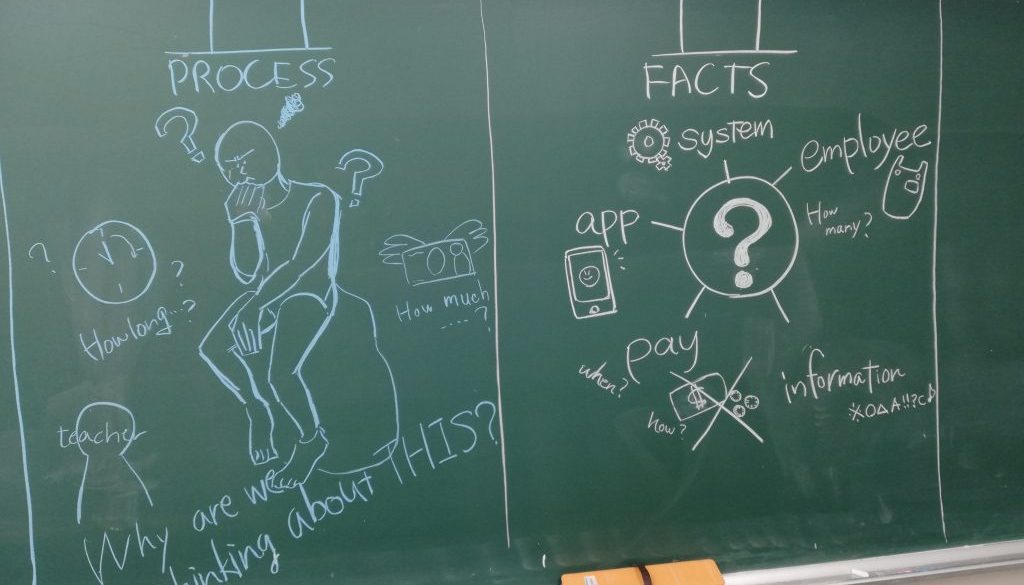 PROCESS
?
?
?
?
How long...?
How much
....?
teacher
Why are we
thinking about THIS?
FACTS
system
employee
How
many?
app
?
pay
when?
how?
$
information